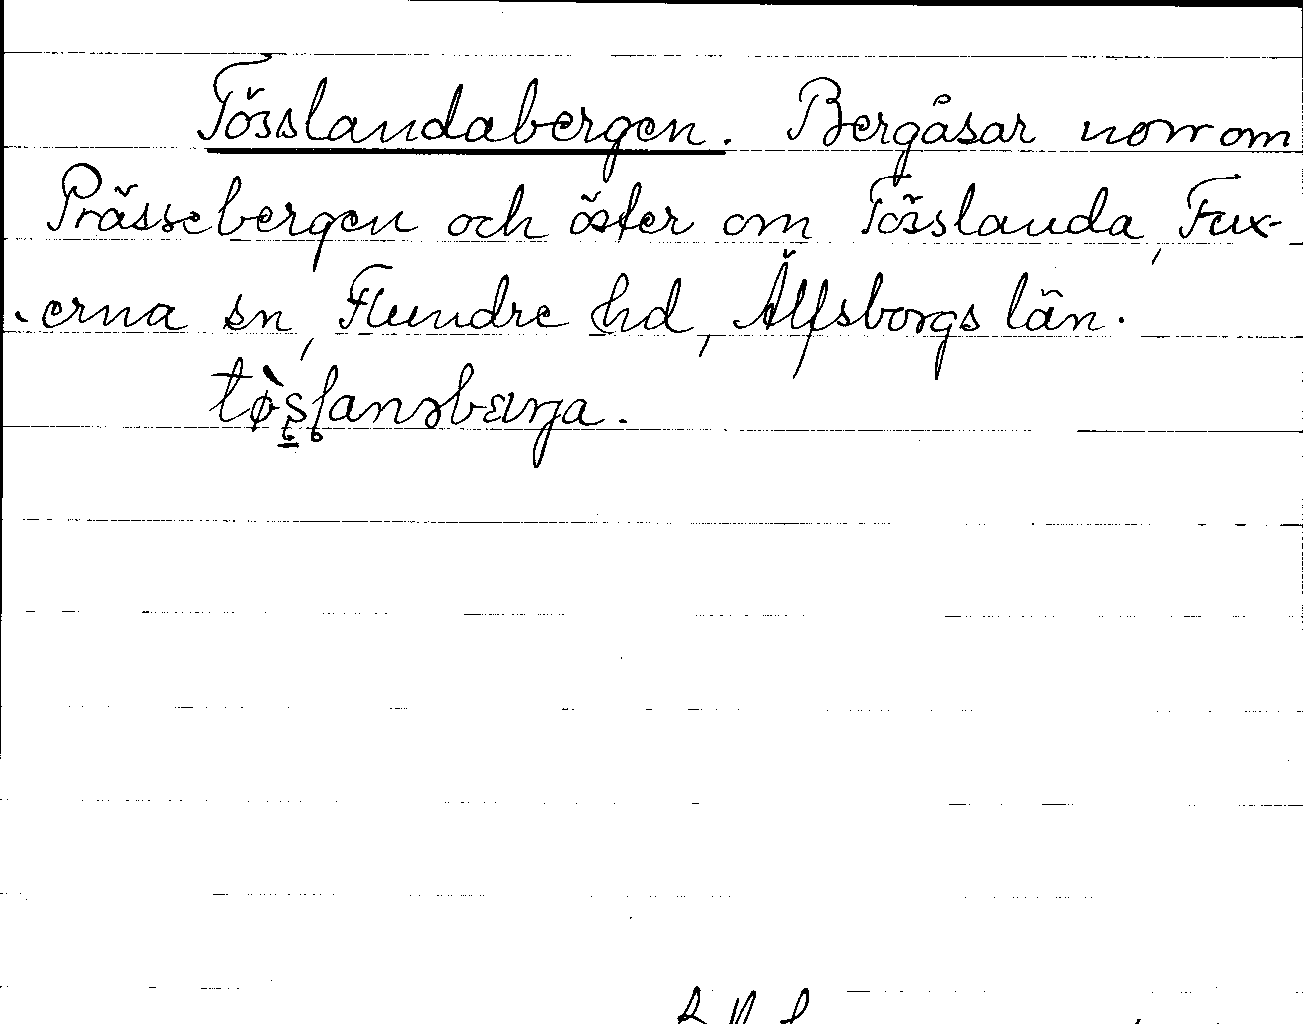 Tösslandabergen. Bergåsar norr om
Prässebergen och öster om Tösslanda, Fux-
erna sn, Flundre hd, Älfsborgs län.